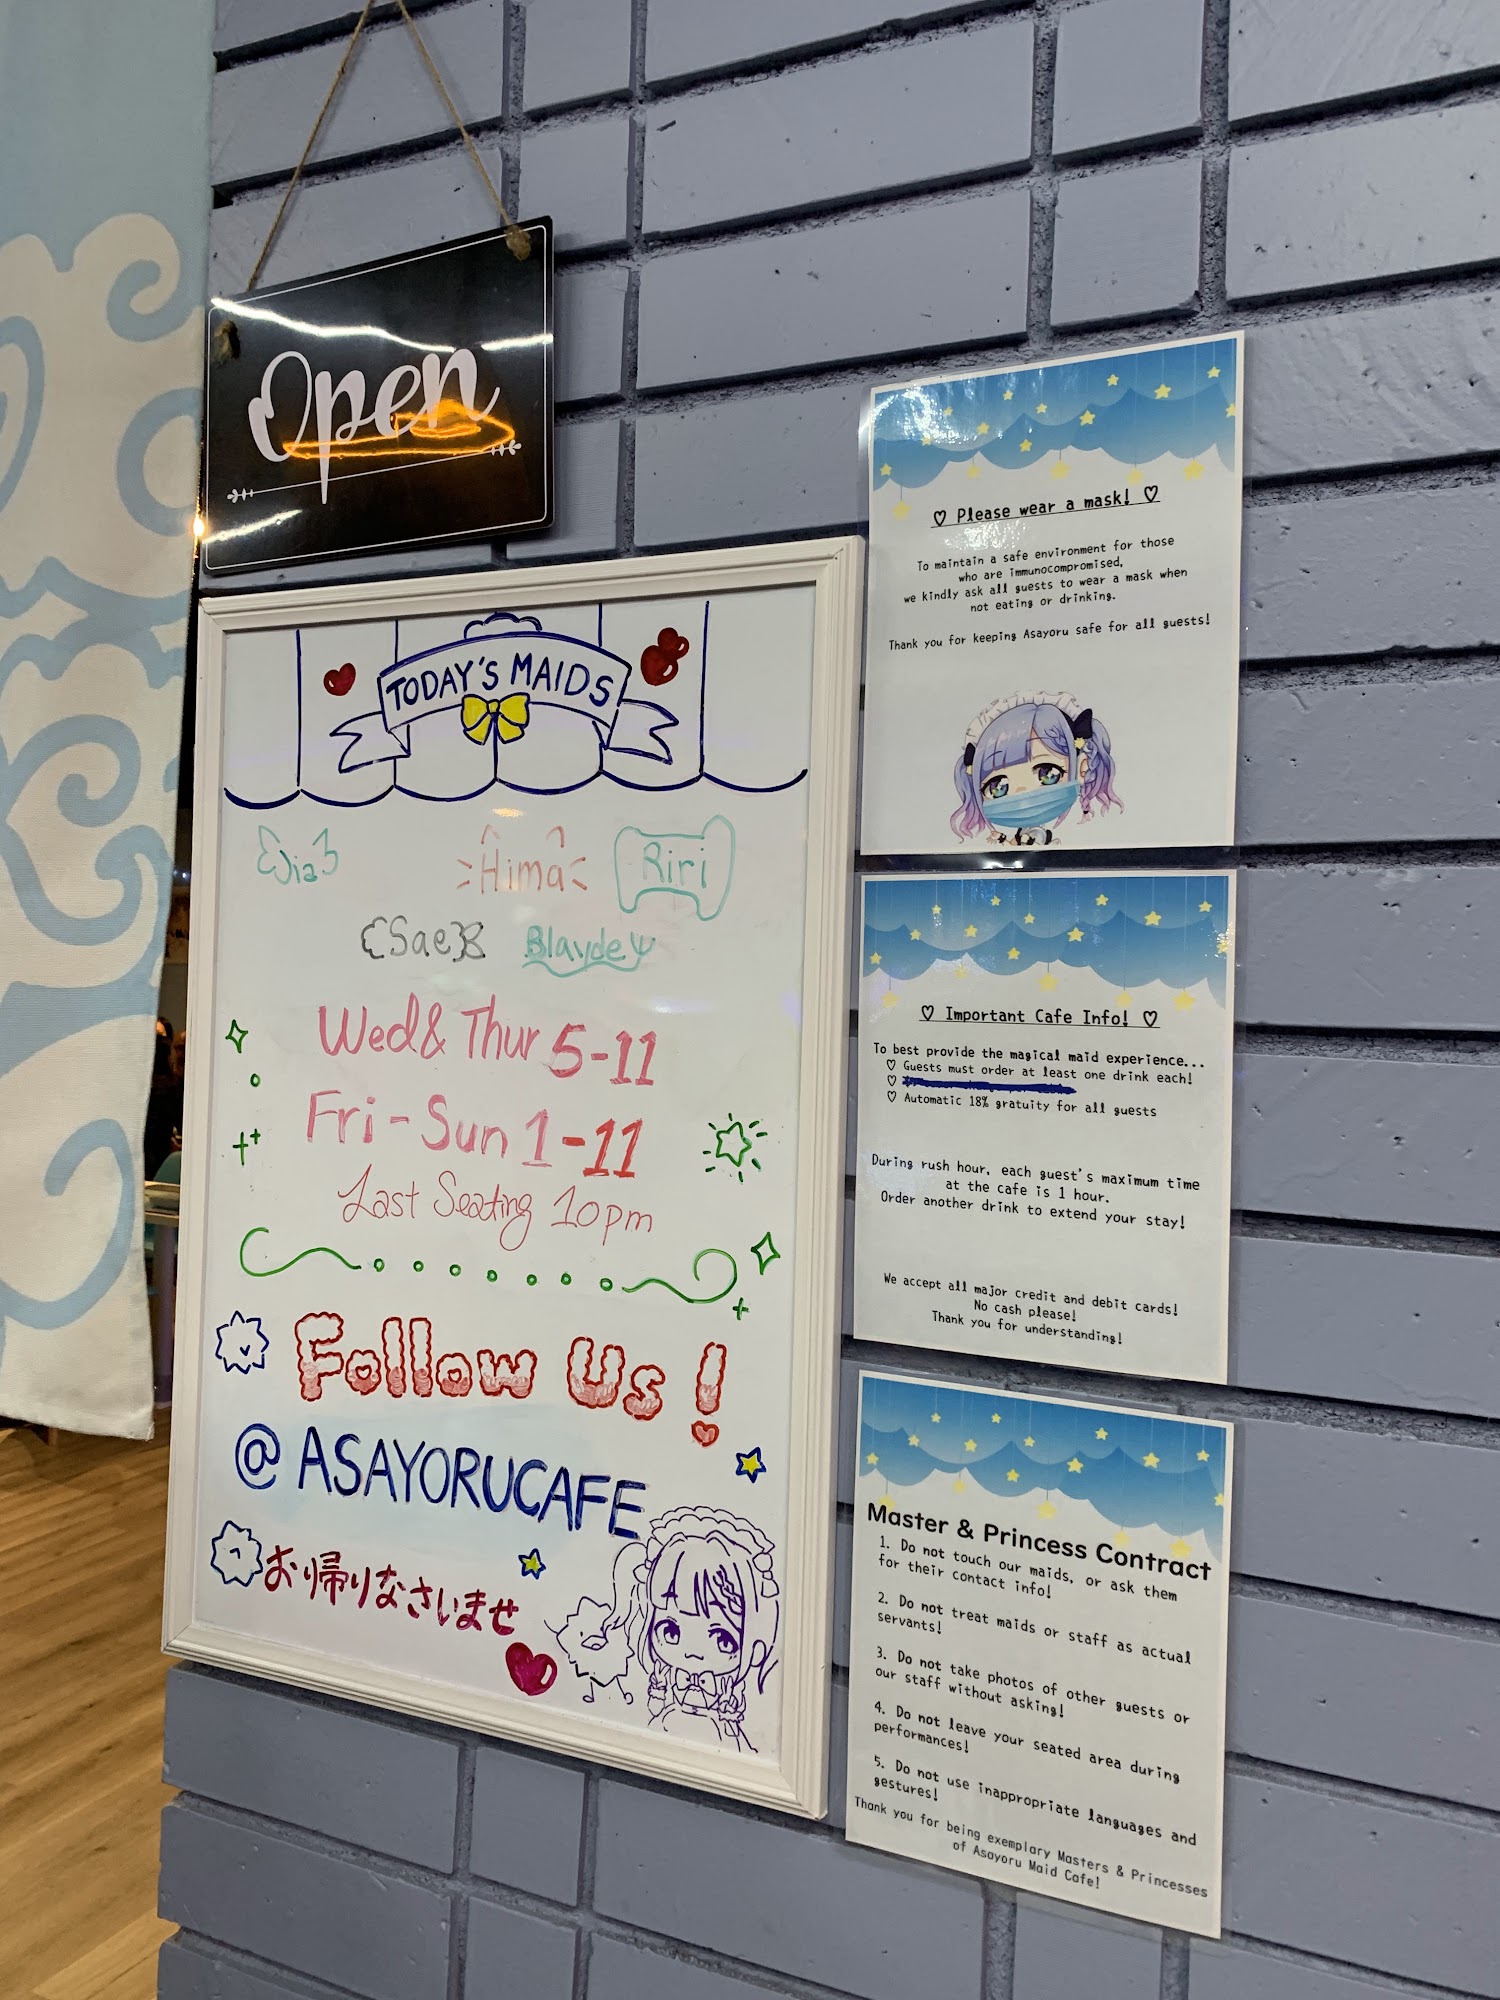 Open
TODAY'S MAIDS
Hima
Riri
Sae
Blayde
Wed & Thur 5-11
Fri - Sun 1-11
Last Seating 10pm
Follow Us!
@ASAYORUCAFE
お帰りなさいませ
♡ Please wear a mask! ♡
To maintain a safe environment for those
who are immunocompromised,
we kindly ask all guests to wear a mask when
not eating or drinking.
Thank you for keeping Asayoru safe for all guests!
♡ Important Cafe Info! ♡
To best provide the magical maid experience...
♡ Guests must order at least one drink each!
♡
♡ Automatic 18% gratuity for all guests
During rush hour, each guest's maximum time
at the cafe is 1 hour.
Order another drink to extend your stay!
We accept all major credit and debit cards!
No cash please!
Thank you for understanding!
Master & Princess Contract
1. Do not touch our maids, or ask them
for their contact info!
2. Do not treat maids or staff as actual
servants!
3. Do not take photos of other guests or
our staff without asking!
4. Do not leave your seated area during
performances!
5. Do not use inappropriate languages and
gestures!
Thank you for being exemplary Masters & Princesses
of Asayoru Maid Cafe!